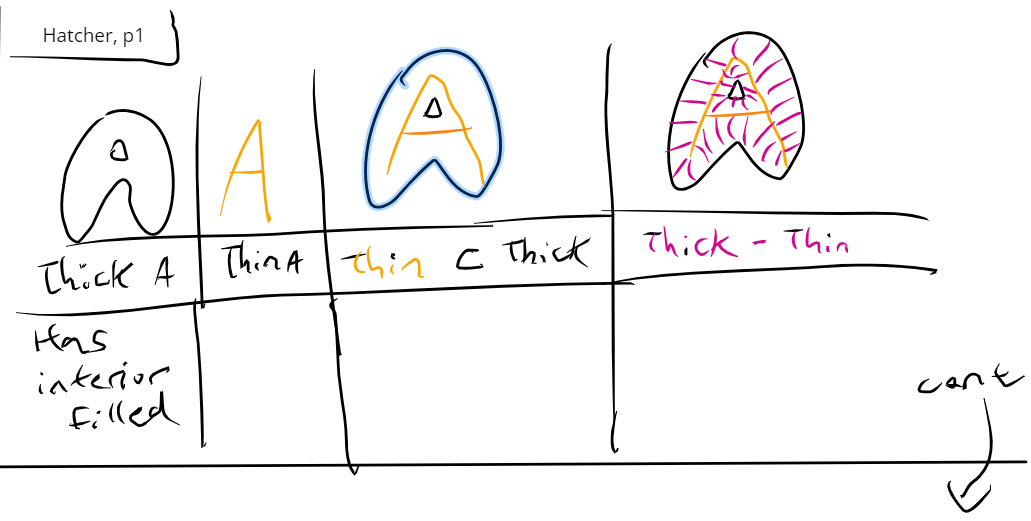 Hatcher, p1
A
Thick A
Thin A
Thin ⊂ Thick
Thick - Thin
Has
interior
filled
cont